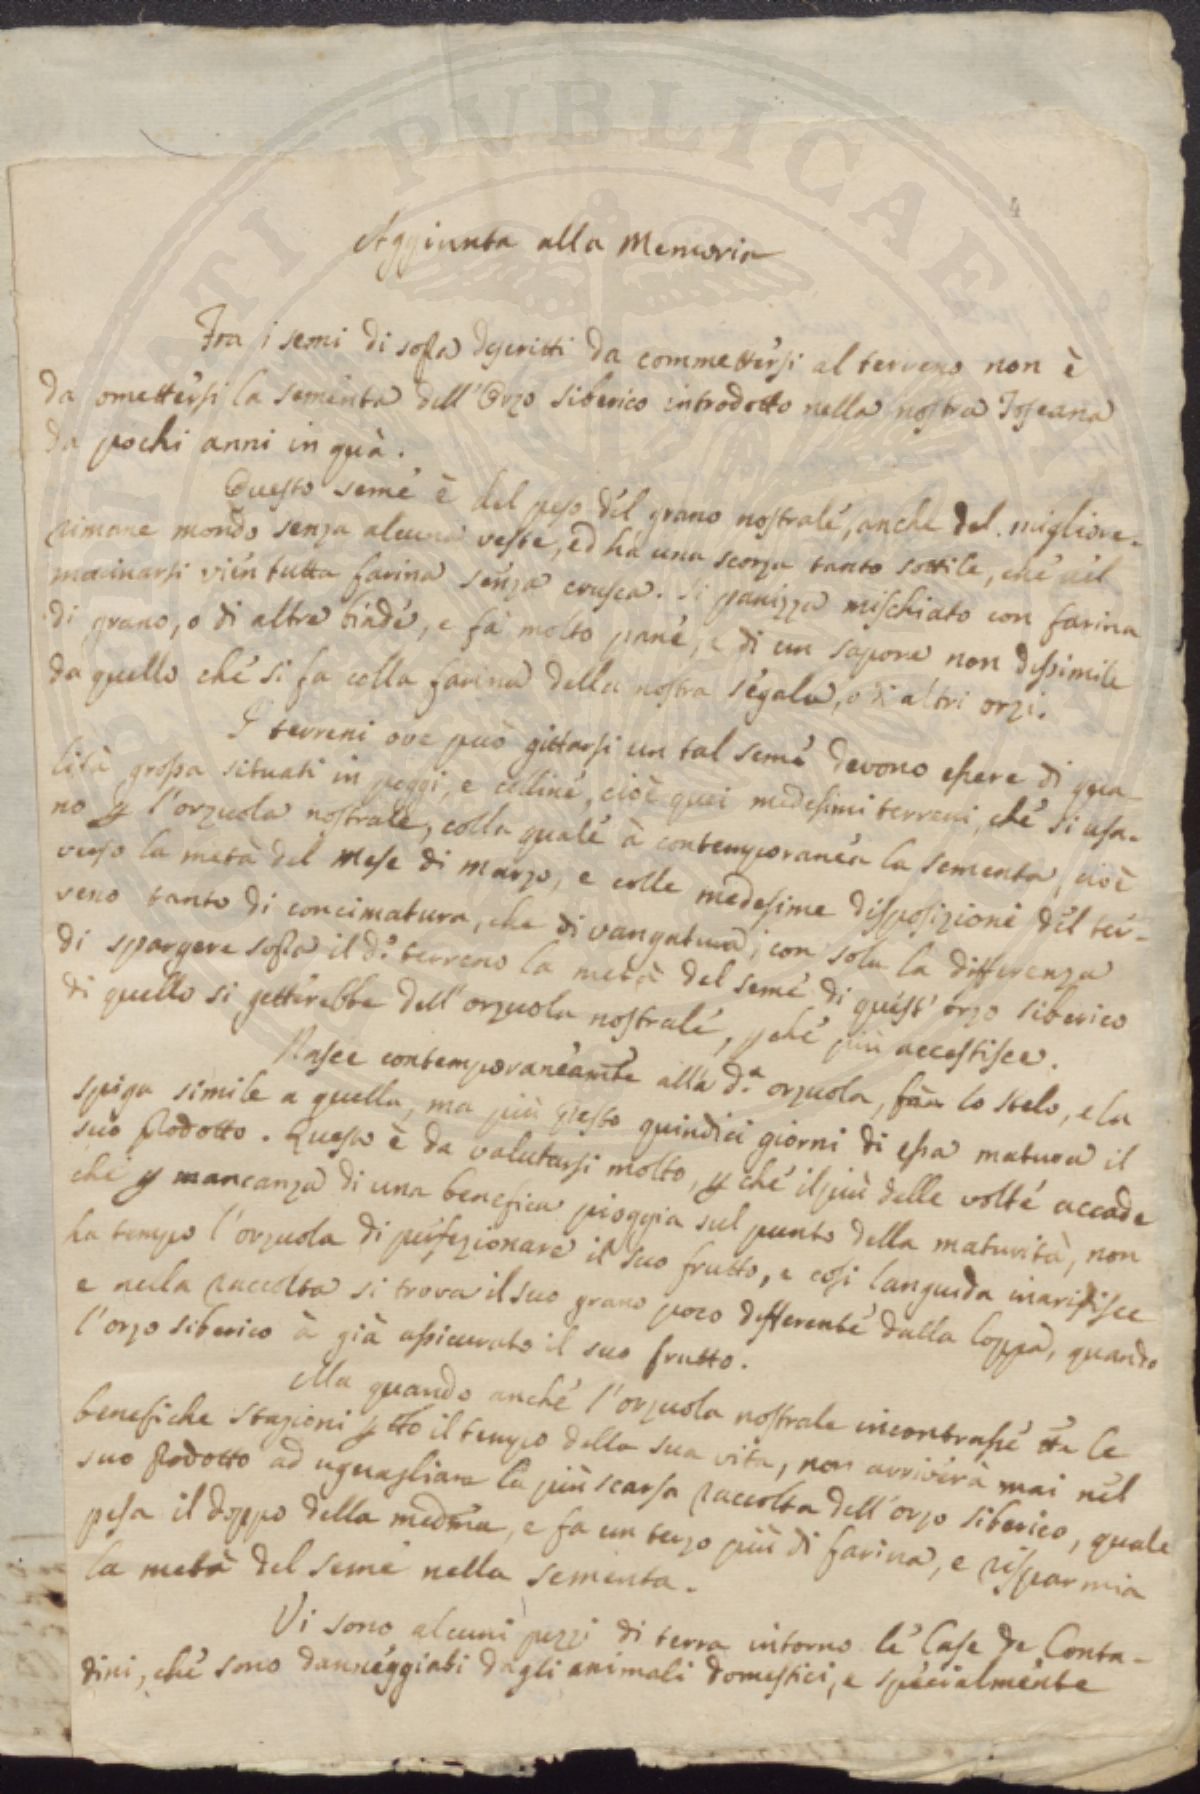 4
Aggiunta alla Memoria
Fra i semi di sopra descritti da commettersi al terreno non è
da omettersi la sementa dell'Orzo Siberico introdotto nella nostra Toscana
da pochi anni in quà.
Questo seme è del peso del grano nostrale, anche del migliore.
rimane mondo senza alcuna veste, ed hà una scorza tanto sottile, che nel
macinarsi vien tutta farina senza crusca. Si panizza mischiato con farina
di grano, o di altre biade, e fà molto pane, e di un sapore non dissimile
da quello che si fa colla farina della nostra segala, o di altri orzi.
I terreni ove può gittarsi un tal seme devono essere di qua
lità grossa situati in poggi, e colline, cioè quei medesimi terreni, che si usa-
no p l'orzuola nostrale, colla quale à contemporanea la sementa, cioè
verso la metà del Mese di Marzo, e colle medesime disposizioni del ter-
reno tanto di concimatura, che di vangatura; con sola la differenza
di spargere sopra il d.º terreno la metà del seme di quest'orzo siberico
di quello si getterebbe dell'orzuola nostrale, pchè più accestisce.
Nasce contemporaneamte alla d.ª orzuola, fàa lo stelo, e la
spiga simile a quella, ma più presto quindici giorni di essa matura il
suo prodotto. Questo è da valutarsi molto, p chè il più delle volte accade
che p mancanza di una benefica pioggia sul punto della maturità, non
ha tempo l'orzuola di perfezionare il suo frutto, e così languida inaridisce
e nella raccolta si trova il suo grano poco differente dalla loppa, quando
l'orzo siberico à già assicurato il suo frutto.
Ma quando anche l'orzuola nostrale incontrasse tte le
benefiche stagioni p tto il tempo della sua vita, non arriverà mai nel
suo prodotto ad uguagliare la più scarsa raccolta dell'orzo siberico, quale
pesa il doppo della medma, e fa un terzo più di farina, e risparmia
la metà del seme nella sementa.
Vi sono alcuni pezzi di terra intorno le Case de Conta-
dini, che sono danneggiati dagli animali domestici, e specialmente